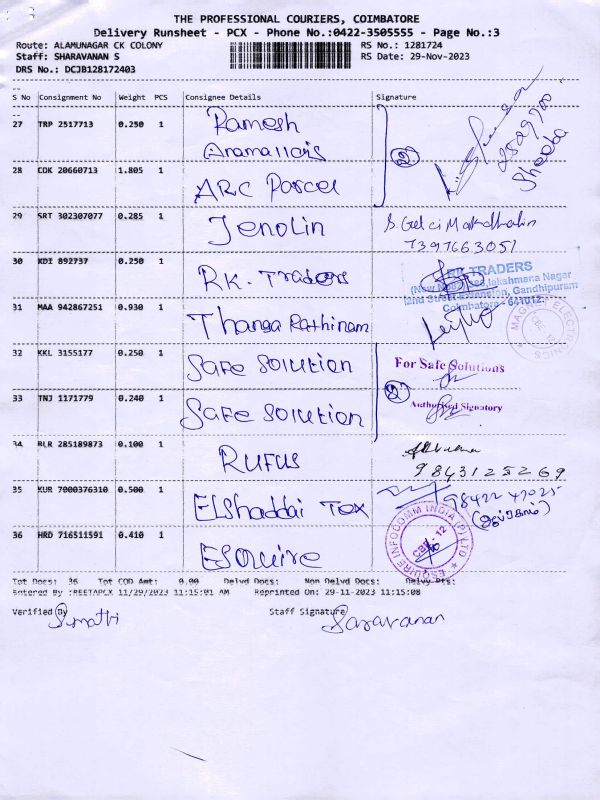 THE PROFESSIONAL COURIERS, COIMBATORE
Delivery Runsheet - PCX - Phone No.:0422-3505555 - Page No.:3
Route: ALAMUNAGAR CK COLONY RS No.: 1281724
Staff: SHARAVANAN S RS Date: 29-Nov-2023
DRS No.: DCJB128172403
S No Consignment No Weight PCS Consignee Details Signature
27 TRP 2517713 0.250 1 Ramesh
28 COK 20660713 1.805 1 ARC Parcel
2
Sheeba
29 SRT 302307077 0.285 1 Jenolin
7397663051
30 KDI 892737 0.250 1 RK. Traders
RK TRADERS
2nd Street Extension, Gandhipuram
Coimbatore - 641012.
31 MAA 942867251 0.930 1 Thanga Rathinam
32 KKL 3155177 0.250 1 Safe Solution
For Safe Solutions
33 TNJ 1171779 0.240 1 Safe Solution
2
Authorised Signatory
34 BLR 285189873 0.100 1 RUFUS
9843125269
35 KUR 7000376310 0.500 1 ELShaddai Tex
98422 47025
36 HRD 716511591 0.410 1 ESquire
ESQUIRE INFOCOMM INDIA (P) LTD
CBE - 12
Tot Docs: 36 Tot COD Amt: 0.00 Delvd Docs: Non Delvd Docs: Delvy Pts:
Entered By :REETAPCX 11/29/2023 11:15:01 AM Reprinted On: 29-11-2023 11:15:08
Verified By Staff Signature
Sumathi Saravanan